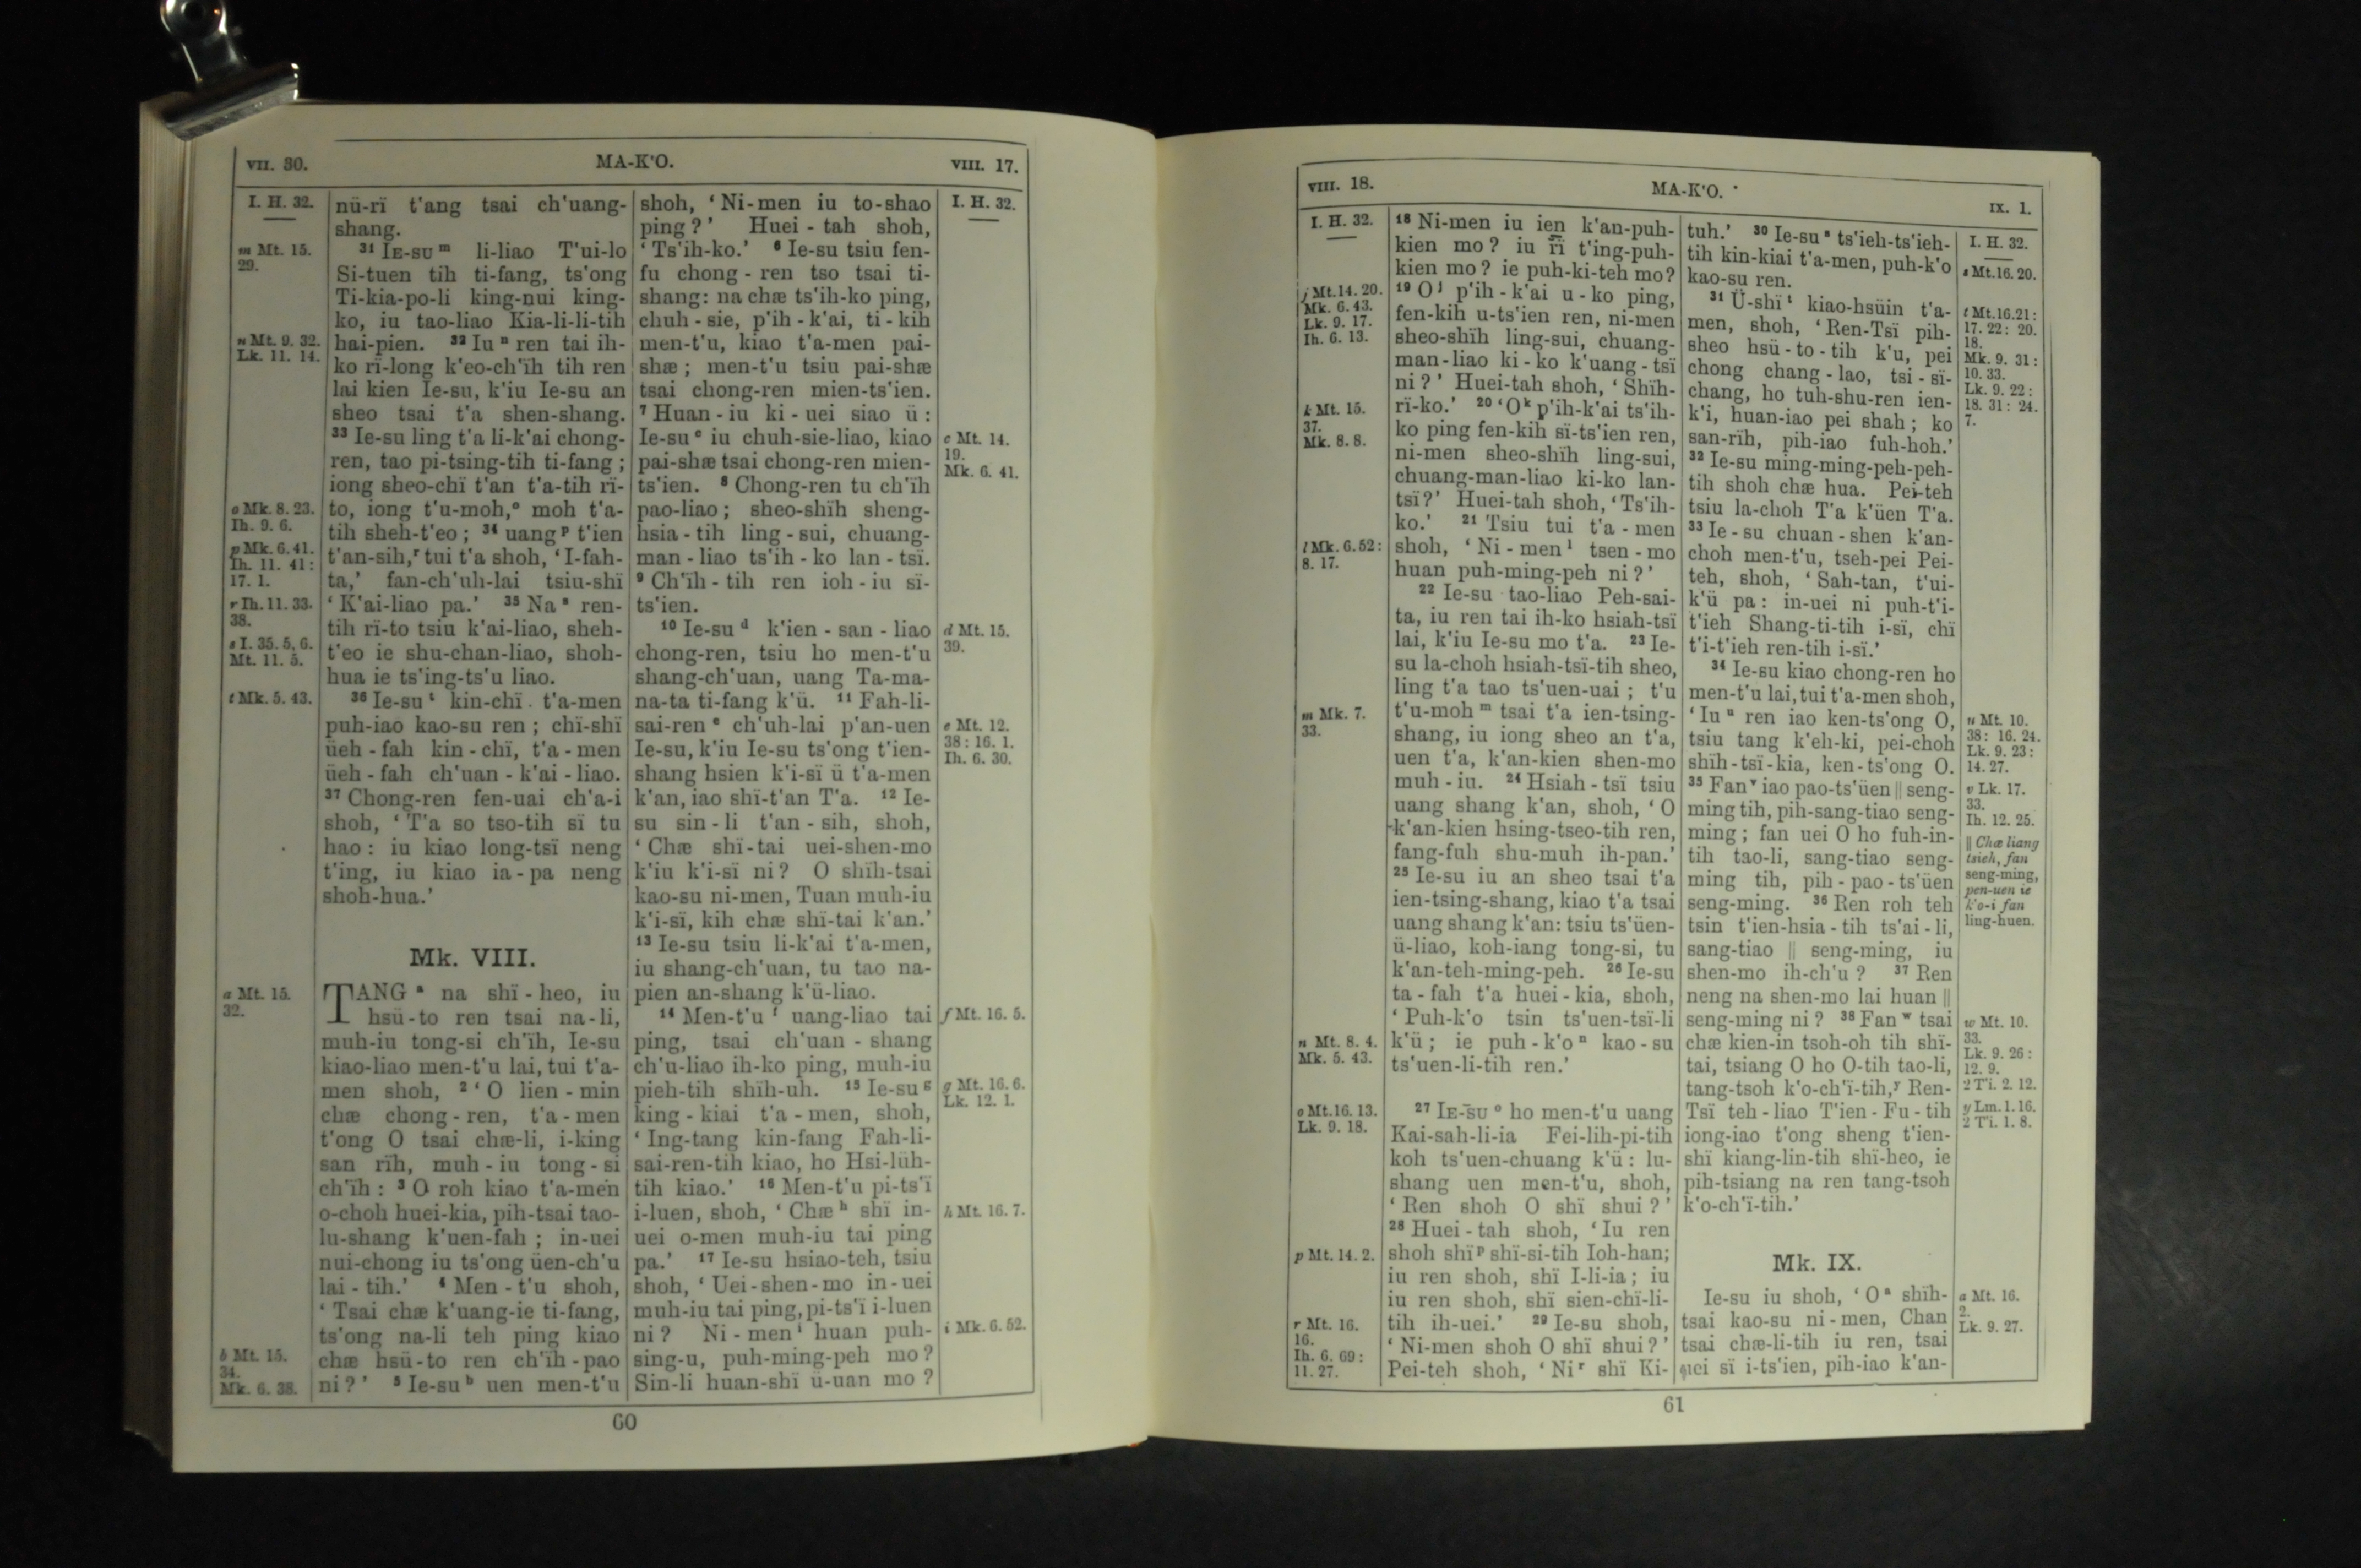 VII. 30. MA-K'O. VIII. 17.
I. H. 32.
m Mt. 15.
29.
n Mt. 9. 32.
Lk. 11. 14.
o Mk. 8. 23.
Ih. 9. 6.
p Mk. 6. 41.
Ih. 11. 41:
17. 1.
r Ih. 11. 33.
38.
s I. 35. 5, 6.
Mt. 11. 5.
t Mk. 5. 43.
a Mt. 15.
32.
b Mt. 15.
34.
Mk. 6. 38.
nü-rï t'ang tsai ch'uang-
shang.
31 IE-SU m li-liao T'ui-lo
Si-tuen tih ti-fang, ts'ong
Ti-kia-po-li king-nui king-
ko, iu tao-liao Kia-li-li-tih
hai-pien. 32 Iu n ren tai ih-
ko rï-long k'eo-ch'ïh tih ren
lai kien Ie-su, k'iu Ie-su an
sheo tsai t'a shen-shang.
33 Ie-su ling t'a li-k'ai chong-
ren, tao pi-tsing-tih ti-fang;
iong sheo-chï t'an t'a-tih rï-
to, iong t'u-moh, o moh t'a-
tih sheh-t'eo; 34 uang p t'ien
t'an-sih, r tui t'a shoh, 'I-fah-
ta,' fan-ch'uh-lai tsiu-shï
'K'ai-liao pa.' 35 Na s ren-
tih rï-to tsiu k'ai-liao, sheh-
t'eo ie shu-chan-liao, shoh-
hua ie ts'ing-ts'u liao.
36 Ie-su t kin-chï t'a-men
puh-iao kao-su ren; chï-shï
üeh-fah kin-chï, t'a-men
üeh-fah ch'uan-k'ai-liao.
37 Chong-ren fen-uai ch'a-i
shoh, 'T'a so tso-tih sï tu
hao: iu kiao long-tsï neng
t'ing, iu kiao ia-pa neng
shoh-hua.'
Mk. VIII.
TANG a na shï-heo, iu
hsü-to ren tsai na-li,
muh-iu tong-si ch'ïh, Ie-su
kiao-liao men-t'u lai, tui t'a-
men shoh, 2 'O lien-min
chæ chong-ren, t'a-men
t'ong O tsai chæ-li, i-king
san rïh, muh-iu tong-si
ch'ïh: 3 O roh kiao t'a-men
o-choh huei-kia, pih-tsai tao-
lu-shang k'uen-fah; in-uei
nui-chong iu ts'ong üen-ch'u
lai-tih.' 4 Men-t'u shoh,
'Tsai chæ k'uang-ie ti-fang,
ts'ong na-li teh ping kiao
chæ hsü-to ren ch'ïh-pao
ni?' 5 Ie-su b uen men-t'u
shoh, 'Ni-men iu to-shao
ping?' Huei-tah shoh,
'Ts'ih-ko.' 6 Ie-su tsiu fen-
fu chong-ren tso tsai ti-
shang: na chæ ts'ih-ko ping,
chuh-sie, p'ih-k'ai, ti-kih
men-t'u, kiao t'a-men pai-
shæ; men-t'u tsiu pai-shæ
tsai chong-ren mien-ts'ien.
7 Huan-iu ki-uei siao ü:
Ie-su c iu chuh-sie-liao, kiao
pai-shæ tsai chong-ren mien-
ts'ien. 8 Chong-ren tu ch'ïh
pao-liao; sheo-shïh sheng-
hsia-tih ling-sui, chuang-
man-liao ts'ih-ko lan-tsï.
9 Ch'ïh-tih ren ioh-iu sï-
ts'ien.
10 Ie-su d k'ien-san-liao
chong-ren, tsiu ho men-t'u
shang-ch'uan, uang Ta-ma-
na-ta ti-fang k'ü. 11 Fah-li-
sai-ren e ch'uh-lai p'an-uen
Ie-su, k'iu Ie-su ts'ong t'ien-
shang hsien k'i-sï ü t'a-men
k'an, iao shï-t'an T'a. 12 Ie-
su sin-li t'an-sih, shoh,
'Chæ shï-tai uei-shen-mo
k'iu k'i-sï ni? O shïh-tsai
kao-su ni-men, Tuan muh-iu
k'i-sï, kih chæ shï-tai k'an.'
13 Ie-su tsiu li-k'ai t'a-men,
iu shang-ch'uan, tu tao na-
pien an-shang k'ü-liao.
14 Men-t'u f uang-liao tai
ping, tsai ch'uan-shang
ch'u-liao ih-ko ping, muh-iu
pieh-tih shïh-uh. 15 Ie-su g
king-kiai t'a-men, shoh,
'Ing-tang kin-fang Fah-li-
sai-ren-tih kiao, ho Hsi-lüh-
tih kiao.' 16 Men-t'u pi-ts'ï
i-luen, shoh, 'Chæ h shï in-
uei o-men muh-iu tai ping
pa.' 17 Ie-su hsiao-teh, tsiu
shoh, 'Uei-shen-mo in-uei
muh-iu tai ping, pi-ts'ï i-luen
ni? Ni-men i huan puh-
sing-u, puh-ming-peh mo?
Sin-li huan-shï ü-uan mo?
I. H. 32.
c Mt. 14.
19.
Mk. 6. 41.
d Mt. 15.
39.
e Mt. 12.
38: 16. 1.
Ih. 6. 30.
f Mt. 16. 5.
g Mt. 16. 6.
Lk. 12. 1.
h Mt. 16. 7.
i Mk. 6. 52.
60
VIII. 18. MA-K'O. IX. 1.
I. H. 32.
j Mt. 14. 20.
Mk. 6. 43.
Lk. 9. 17.
Ih. 6. 13.
k Mt. 15.
37.
Mk. 8. 8.
l Mk. 6. 52:
8. 17.
m Mk. 7.
33.
n Mt. 8. 4.
Mk. 5. 43.
o Mt. 16. 13.
Lk. 9. 18.
p Mt. 14. 2.
r Mt. 16.
16.
Ih. 6. 69:
11. 27.
18 Ni-men iu ien k'an-puh-
kien mo? iu rï t'ing-puh-
kien mo? ie puh-ki-teh mo?
19 O j p'ih-k'ai u-ko ping,
fen-kih u-ts'ien ren, ni-men
sheo-shïh ling-sui, chuang-
man-liao ki-ko k'uang-tsï
ni?' Huei-tah shoh, 'Shïh-
rï-ko.' 20 'O k p'ih-k'ai ts'ih-
ko ping fen-kih sï-ts'ien ren,
ni-men sheo-shïh ling-sui,
chuang-man-liao ki-ko lan-
tsï?' Huei-tah shoh, 'Ts'ih-
ko.' 21 Tsiu tui t'a-men
shoh, 'Ni-men l tsen-mo
huan puh-ming-peh ni?'
22 Ie-su tao-liao Peh-sai-
ta, iu ren tai ih-ko hsiah-tsï
lai, k'iu Ie-su mo t'a. 23 Ie-
su la-choh hsiah-tsï-tih sheo,
ling t'a tao ts'uen-uai; t'u
t'u-moh m tsai t'a ien-tsing-
shang, iu iong sheo an t'a,
uen t'a, k'an-kien shen-mo
muh-iu. 24 Hsiah-tsï tsiu
uang shang k'an, shoh, 'O
k'an-kien hsing-tseo-tih ren,
fang-fuh shu-muh ih-pan.'
25 Ie-su iu an sheo tsai t'a
ien-tsing-shang, kiao t'a tsai
uang shang k'an: tsiu ts'üen-
ü-liao, koh-iang tong-si, tu
k'an-teh-ming-peh. 26 Ie-su
ta-fah t'a huei-kia, shoh,
'Puh-k'o tsin ts'uen-tsï-li
k'ü; ie puh-k'o n kao-su
ts'uen-li-tih ren.'
27 IE-SU o ho men-t'u uang
Kai-sah-li-ia Fei-lih-pi-tih
koh ts'uen-chuang k'ü: lu-
shang uen men-t'u, shoh,
'Ren shoh O shï shui?'
28 Huei-tah shoh, 'Iu ren
shoh shï p shï-si-tih Ioh-han;
iu ren shoh, shï I-li-ia; iu
iu ren shoh, shï sien-chï-li-
tih ih-uei.' 29 Ie-su shoh,
'Ni-men shoh O shï shui?'
Pei-teh shoh, 'Ni r shï Ki-
tuh.' 30 Ie-su s ts'ieh-ts'ieh-
tih kin-kiai t'a-men, puh-k'o
kao-su ren.
31 Ü-shï t kiao-hsüin t'a-
men, shoh, 'Ren-Tsï pih-
sheo hsü-to-tih k'u, pei
chong chang-lao, tsi-sï-
chang, ho tuh-shu-ren ien-
k'i, huan-iao pei shah; ko
san-rïh, pih-iao fuh-hoh.'
32 Ie-su ming-ming-peh-peh-
tih shoh chæ hua. Pei-teh
tsiu la-choh T'a k'üen T'a.
33 Ie-su chuan-shen k'an-
choh men-t'u, tseh-pei Pei-
teh, shoh, 'Sah-tan, t'ui-
k'ü pa: in-uei ni puh-t'i-
t'ieh Shang-ti-tih i-sï, chï
t'i-t'ieh ren-tih i-sï.'
34 Ie-su kiao chong-ren ho
men-t'u lai, tui t'a-men shoh,
'Iu u ren iao ken-ts'ong O,
tsiu tang k'eh-ki, pei-choh
shïh-tsï-kia, ken-ts'ong O.
35 Fan v iao pao-ts'üen || seng-
ming tih, pih-sang-tiao seng-
ming; fan uei O ho fuh-in-
tih tao-li, sang-tiao seng-
ming tih, pih-pao-ts'üen
seng-ming. 36 Ren roh teh
tsin t'ien-hsia-tih ts'ai-li,
sang-tiao || seng-ming, iu
shen-mo ih-ch'u? 37 Ren
neng na shen-mo lai huan ||
seng-ming ni? 38 Fan w tsai
chæ kien-in tsoh-oh tih shï-
tai, tsiang O ho O-tih tao-li,
tang-tsoh k'o-ch'ï-tih, y Ren-
Tsï teh-liao T'ien-Fu-tih
iong-iao t'ong sheng t'ien-
shï kiang-lin-tih shï-heo, ie
pih-tsiang na ren tang-tsoh
k'o-ch'ï-tih.'
Mk. IX.
Ie-su iu shoh, 'O a shïh-
tsai kao-su ni-men, Chan
tsai chæ-li-tih iu ren, tsai
uei sï i-ts'ien, pih-iao k'an-
I. H. 32.
s Mt. 16. 20.
t Mt. 16. 21:
17. 22: 20.
18.
Mk. 9. 31:
10. 33.
Lk. 9. 22:
18. 31: 24.
7.
u Mt. 10.
38: 16. 24.
Lk. 9. 23:
14. 27.
v Lk. 17.
33.
Ih. 12. 25.
|| Chæ liang
tsieh, fan
seng-ming,
pen-uen ie
k'o-i fan
ling-huen.
w Mt. 10.
33.
Lk. 9. 26:
12. 9.
2 T'i. 2. 12.
y Lm. 1. 16.
2 T'i. 1. 8.
a Mt. 16.
2.
Lk. 9. 27.
61